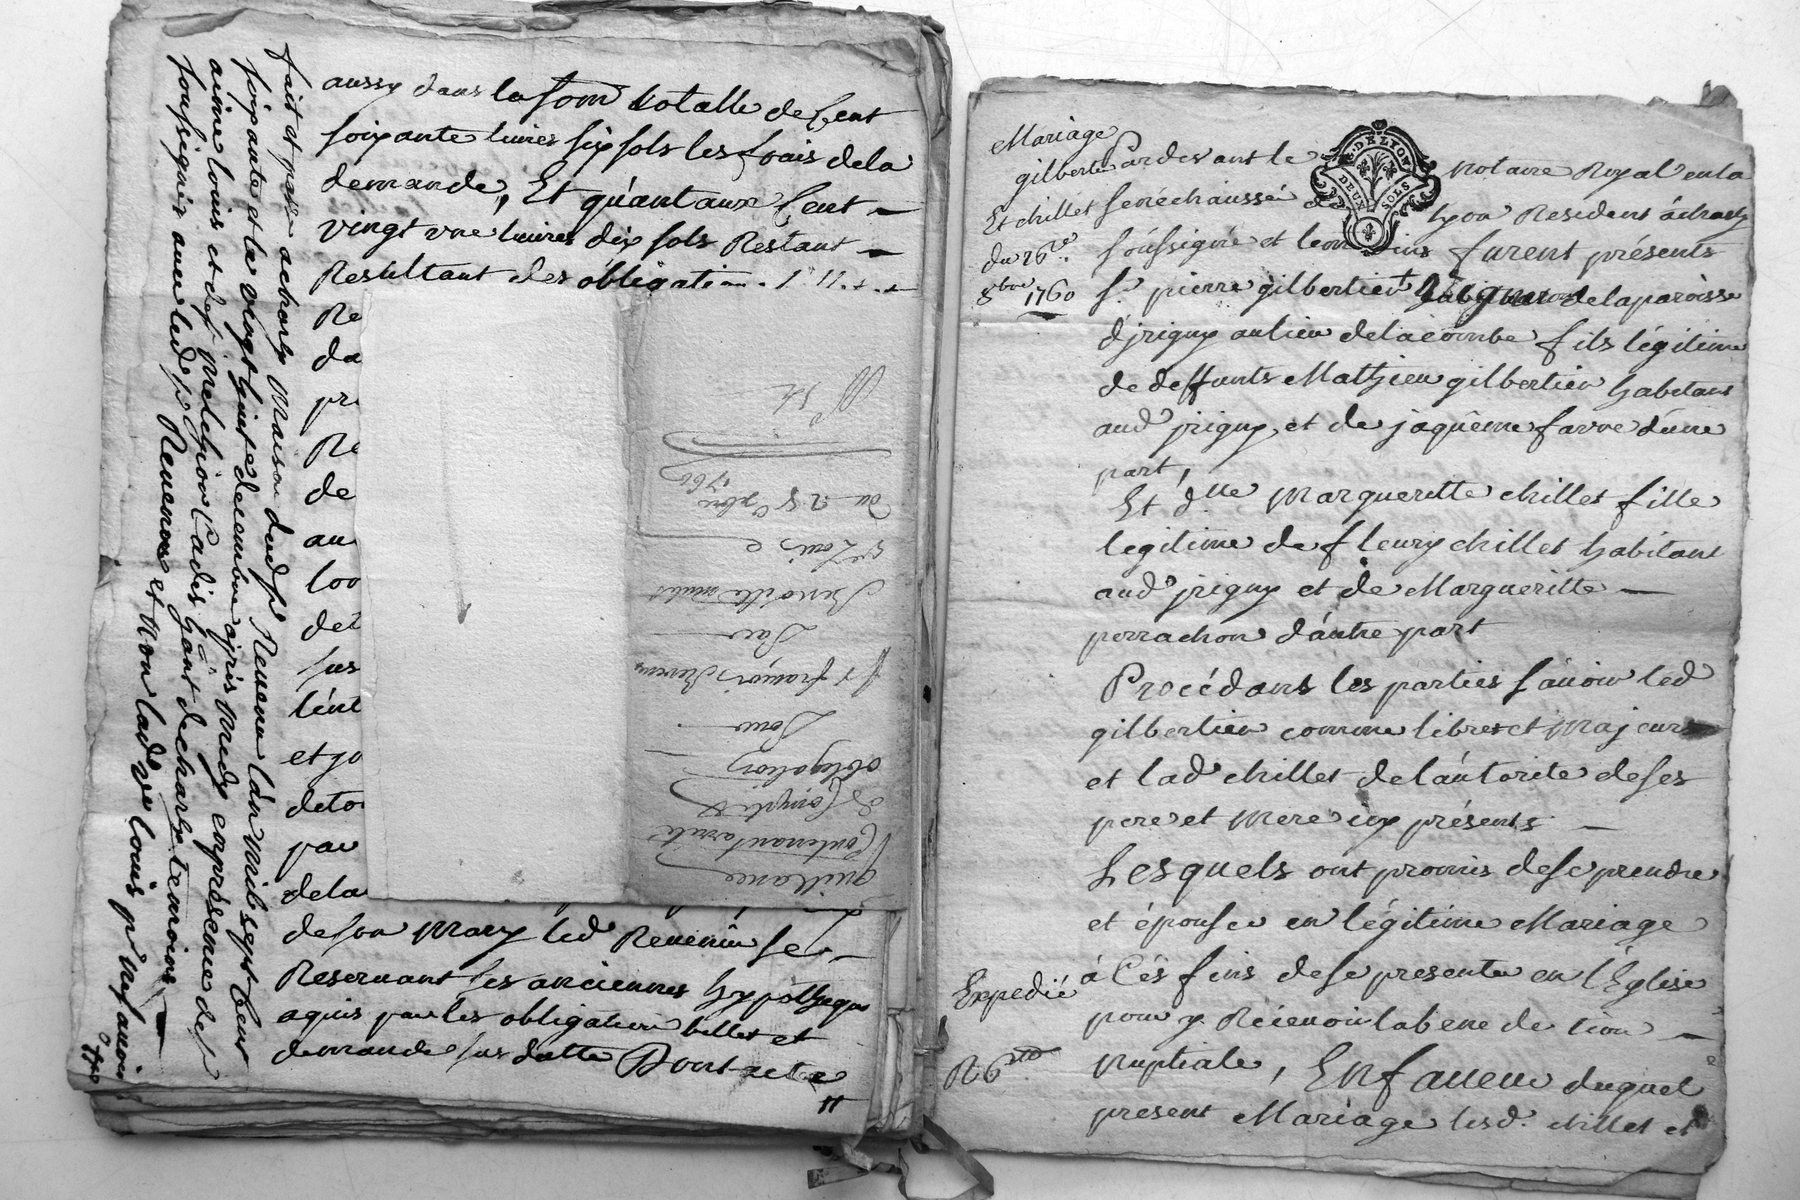 aussy dans la som totalle de Cent
soixante livres six sols les frais de la
demande, Et quant aux Cent
vingt une livres dix sols Restant
Resultant des obligation
Re
da
pre
Re
de
au
loo
det
sus
l'ent
et go
de to
par
de la
de son mary led Revenin se
Reservant ses anciennes hypotheques
aquis par les obligation billet et
demande sus datte Dont acte
fait et passé a charly maison dud sr Revenu l'an mil sept Cent
soixante et le vingt huit decembre apris midy en presence de sr
aimé louis et de sr melchior Cadis gant de charly temoins
soussignés avec led sr Revenu et non lad ve louis pr ne savoir
quittance
Contenant arrêté
de Compte &
obligation
Pour
sr françois Revenu
Par
Benoitte
ve Louis
du 28 Xbre
1760
Mariage
gilbertier
Et chillet
du 26e
8bre 1760
Expedié
R 6
G. DE LYON
DEUX SOLS
Pardevant le notaire Royal en la
senéchaussé de lyon Resident à charly
soussigné et temoins furent présents
sr. pierre gilbertier vigneron de la paroisse
d'jrigny au lieu de la combe fils légitime
de deffunts Mathieu gilbertier habitant
aud jrigny, et de jaquéme favre d'une
part,
Et d.lle Margueritte chillet fille
legitime de fleury chillet habitant
aud jrigny et de Margueritte
perrachon d'autre part
Procédants les parties sávoir led
gilbertier comme libre et Majeur
et lad chillet de l'autorite de ses
pere et mere icy présents
Lesquels ont promis de se prendre
et épouser en légitime Mariage
à Cés fins de se presenter en l'Eglise
pour y Récevoir la benediction
nuptiale, En faveur duquel
present Mariage lesd. chillet et